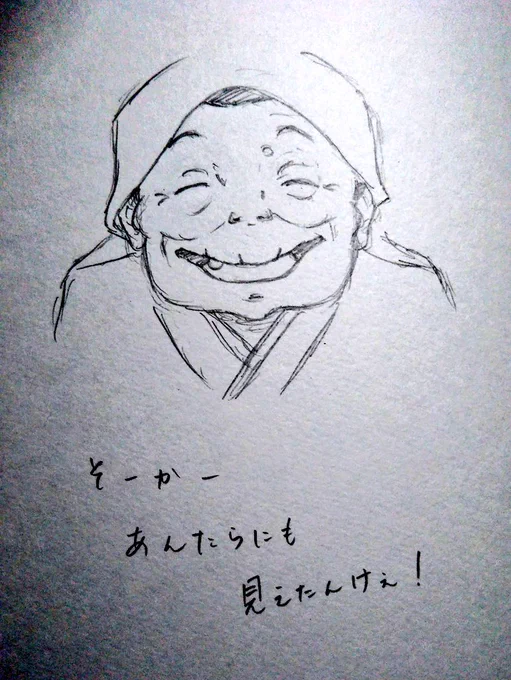 そーかー
あんたらにも
見えたんけぇ!